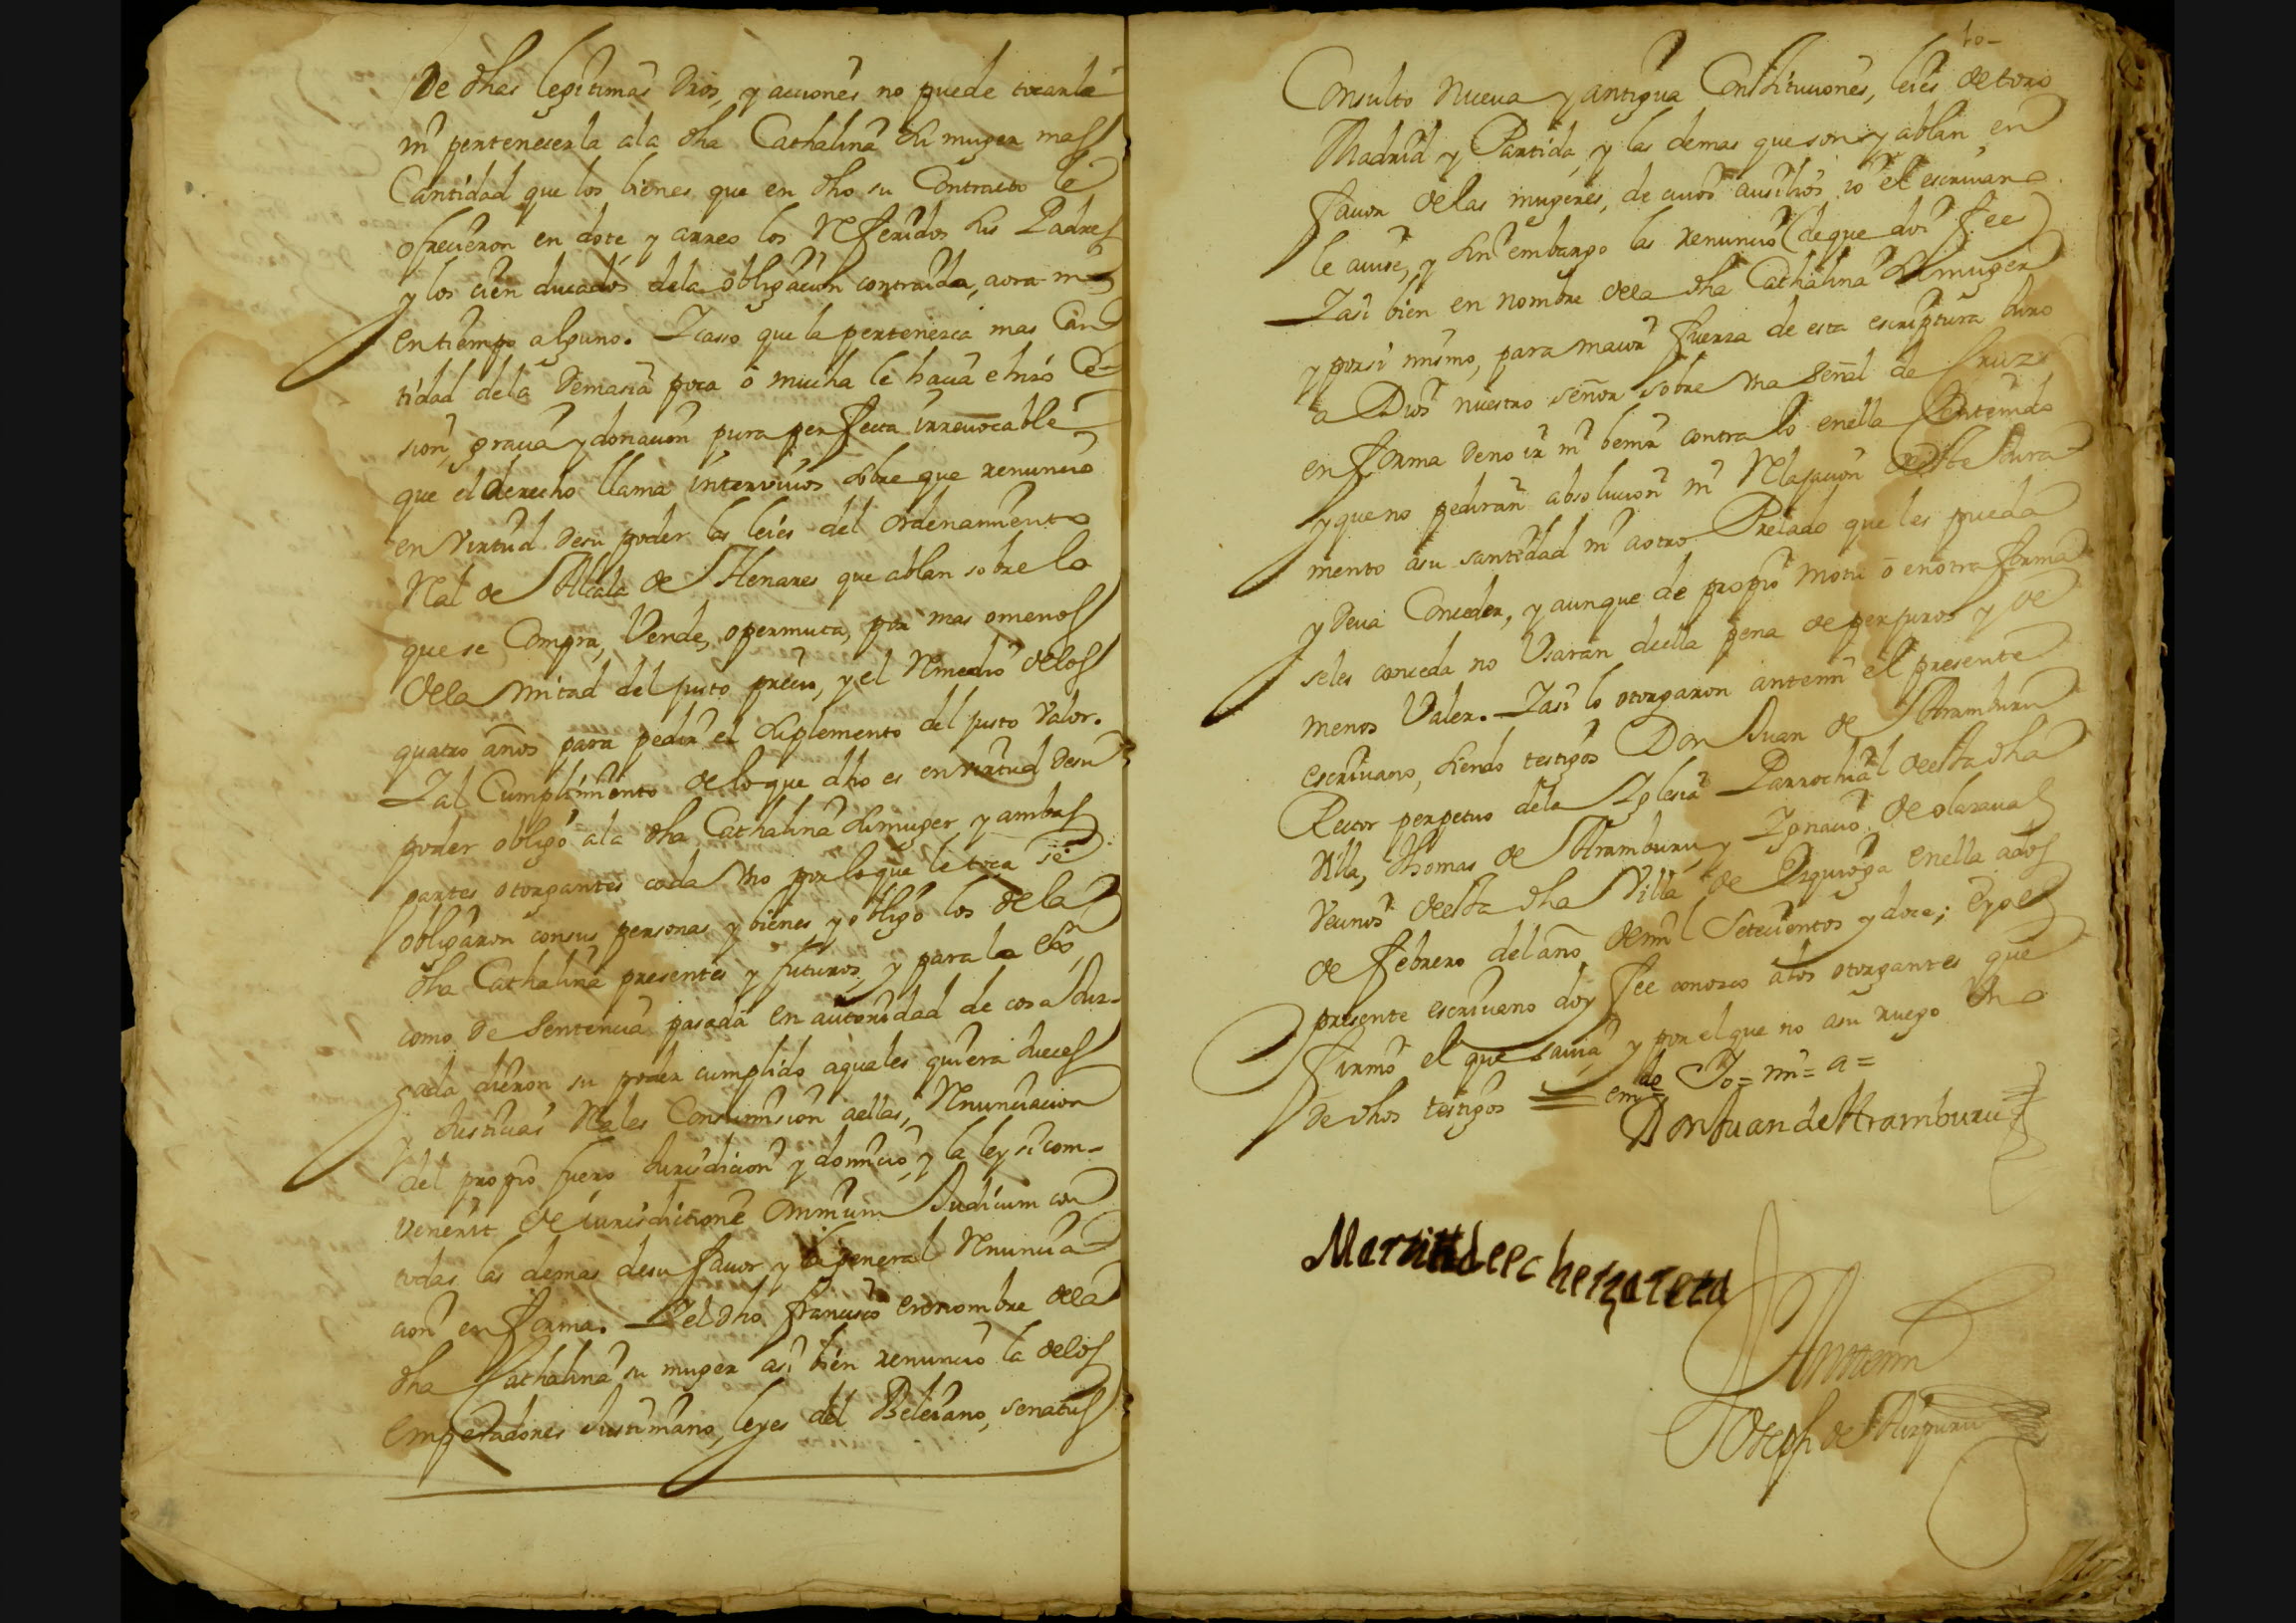 De dhas legitimas dros, y acciones no puede tocarle
ni pertenecerla ala dha Cathalina su muger mas
Cantidad que los bienes que en dho su Contracto le
ofrecieron en dote y arreo los Referidos sus Padres
y los cien ducados dela obligacion contraida, aora ni
en tiempo alguno. Y caso que la pertenezca mas Can
tidad dela demasia poca ô mucha le hacia e hizo Ce-
sion, gracia y donacion pura perfecta irrevocable
que el derecho llama intervivos sobre que renuncio
en virtud desu poder las leies del ordenamiento
Real de Alcala de Henares que ablan sobre lo
que se Compra, Vende, o permuta, por mas omenos
dela mitad del justo precio, y el Remedio delos
quatro años para pedir el suplemento del justo Valor.
Y al Cumplimiento de lo que dho es en virtud desu
poder obligo ala dha Cathalina su muger y ambas
partes otorgantes cada uno por lo que le toca se
obligaron consus personas y bienes y obligo los de la
dha Cathalina presentes y futuros, y para la exon
como de Sentencia pasada en autoridad de cosa Juz-
gada dieron su poder cumplido aquales quiera Jueces
y Justicias Reales Consumision aellas, Renunciacion
del propio fuero Jurisdicion y domicio, y la ley si com-
venerit de iurisditione omnium Judicum con
todas las demas desu favor y la general Renuncia
cion en forma. Y el dho francisco en nombre dela
dha Cathalina su muger asi bien renuncio la delos
Emperadores Justiniano, leyes del Beleiano, senatus
to-
Consulto nueva y antigua Constituciones, leies de toro
Madrid y Partida, y las demas que son y ablan en
favor delas mugeres, de cuios ausilios io el escrivano
le avise, y sin embargo las renuncio (de que doi fee)
Y asi bien en nombre dela dha Cathalina su muger
y por si mismo, para maior fuerza de esta escriptura Juro
a Dios nuestro señor sobre una Señal de Cruz
en forma deno ir ni benir contra lo enella Contenido
y que no pediran absolucion ni Relajacion deeste Jura
mento asu santidad ni aotro Prelado que les pueda
y deva Conceder, y aunque de propio motu ô en otra forma
seles conceda no Usaran duella pena de perjuros y de
menos Valer. Y asi lo otorgaron antemi el presente
escrivano, siendo testigos Don Juan de Aramburu
Rector perpetuo dela Yglesia Parrochial deesta dha
Villa, Thomas de Aramburu y Ygnacio de olarava
vecinos deesta dha Villa de Ezquioga enella ados
de febrero del año demil Setecientos y doce; E yo el
presente escrivano doy fee conozco alos otorgantes que
firmo el que savia y por el que no asu ruego Uno
de dhos testigos = emdo = Jo = mi = a =
Don Juan de Aramburu
Martin de echezarreta
Antemi
Joseph de Aizpuru